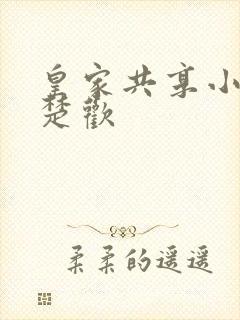 皇家共享小
楚歡
柔柔的遥遥